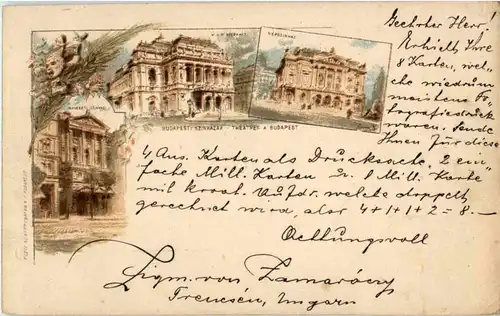 M. KIR. OPERAHÁZ
NÉPSZINHÁZ
NEMZETI SZINHÁZ
BUDAPESTI SZINHÁZAK THEATRES A BUDAPEST
Geehrter Herr!
Erhielt Ihre
8 Karten, wel-
che wiedrum
meistens Fo-
tografiedruck
waren. Sende
Ihnen für diese
4 Ans. Karten als Drucksache, 2 ein-
fache Mill. Karten u. 1 Mill. Karte
mit kroat. Aufdr. welche doppelt
gerechnet wird, also 4+1+1+2=8.—
Achtungsvoll
Sigm. von Zamaróczy
Trencsén, Ungarn